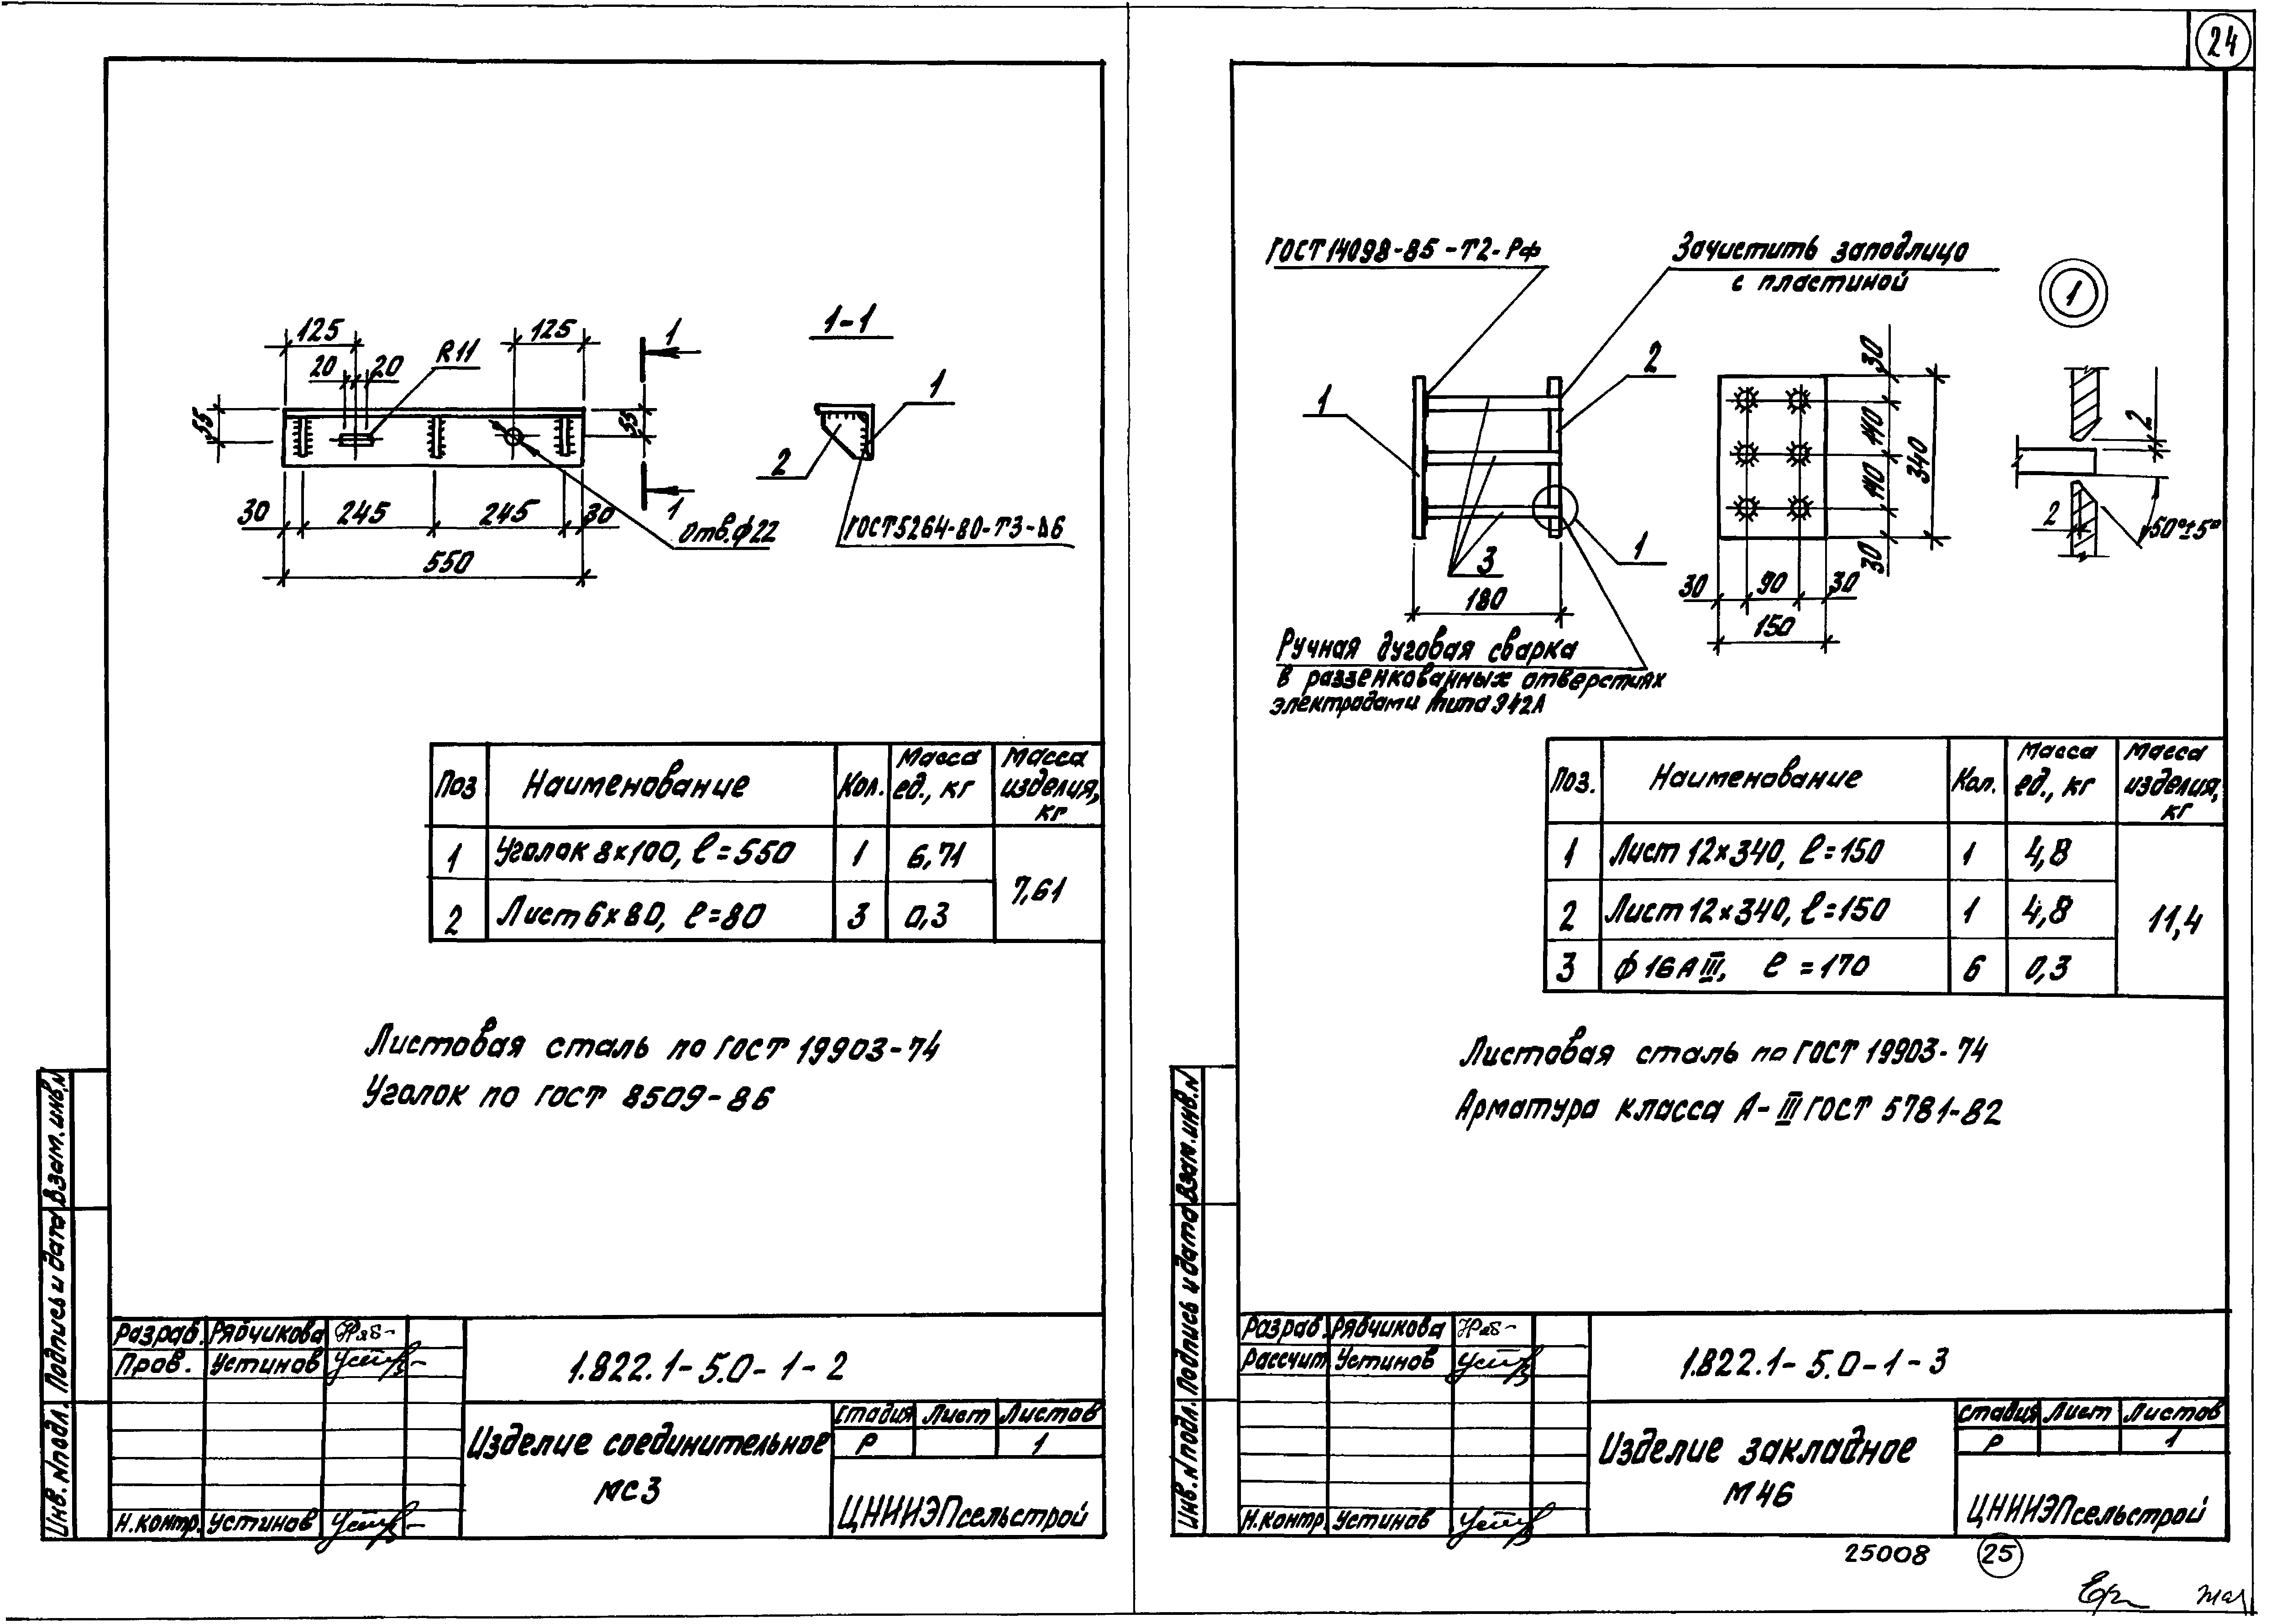 24
125
125
20
20
R11
1
1-1
1
55
55
2
1
30
245
245
30
Отв.ф22
ГОСТ5264-80-Т3-Δ6
550
Поз
Наименование
Кол.
Масса ед., кг
Масса изделия, кг
1 Уголок 8×100, ℓ=550 1 6,71
7,61
2 Лист 6×80, ℓ=80 3 0,3
Листовая сталь по ГОСТ 19903-74
Уголок по ГОСТ 8509-86
Взам.инв.N
Подпись и дата
Инв.Nподл.
Разраб. Рябчикова
Пров. Устинов
Н.контр. Устинов
1.822.1-5.0-1-2
Изделие соединительное
МС3
Стадия Лист Листов
Р 1
ЦНИИЭПсельстрой
ГОСТ14098-85-Т2-Рф
Зачистить заподлицо
с пластиной
1
1
2
3
1
180
30
110
110
30
340
30
90
30
150
2
2
50°±5°
Ручная дуговая сварка
в раззенкованных отверстиях
электродами типа Э42А
Поз.
Наименование
Кол.
Масса ед., кг
Масса изделия, кг
1 Лист 12×340, ℓ=150 1 4,8
2 Лист 12×340, ℓ=150 1 4,8
11,4
3 ф16АIII, ℓ=170 6 0,3
Листовая сталь по ГОСТ 19903-74
Арматура класса А-III ГОСТ 5781-82
Взам.инв.N
Подпись и дата
Инв.Nподл.
Разраб. Рябчикова
Рассчит. Устинов
Н.контр. Устинов
1.822.1-5.0-1-3
Изделие закладное
М46
Стадия Лист Листов
Р 1
ЦНИИЭПсельстрой
25008
25